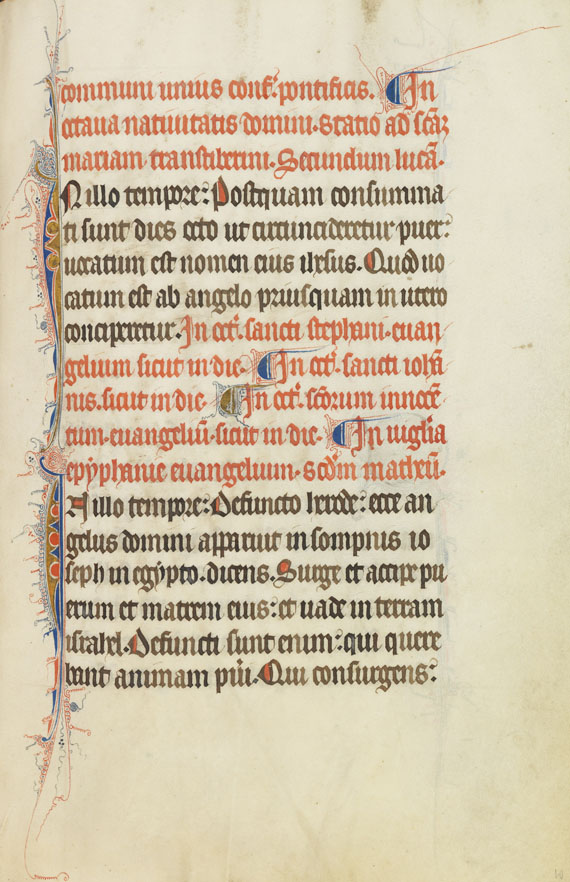 communi unius conf. pontificis. In
octaua natiuitatis domini. Statio ad scām
mariam transtiberini. Secundum lucā.
N illo tempore: Postquam consumma
ti sunt dies octo ut circuncideretur puer:
uocatum est nomen eius ihesus. Quod uo
catum est ab angelo priusquam in utero
conciperetur. In oct. sancti stephani. euan
gelium sicut in die. In oct. sancti iohā
nis. sicut in die. In oct. scōrum innocē
tum. euangeliū. sicut in die. In uiglia
epyphanie euangelium. scdm matheū.
N illo tempore: Defuncto herode: ecce an
gelus domini apparuit in sompnis io
seph in egypto. dicens. Surge et accipe pu
erum et matrem eius: et uade in terram
israhel. Defuncti sunt enim: qui quere
bant animam pūi. Qui consurgens: